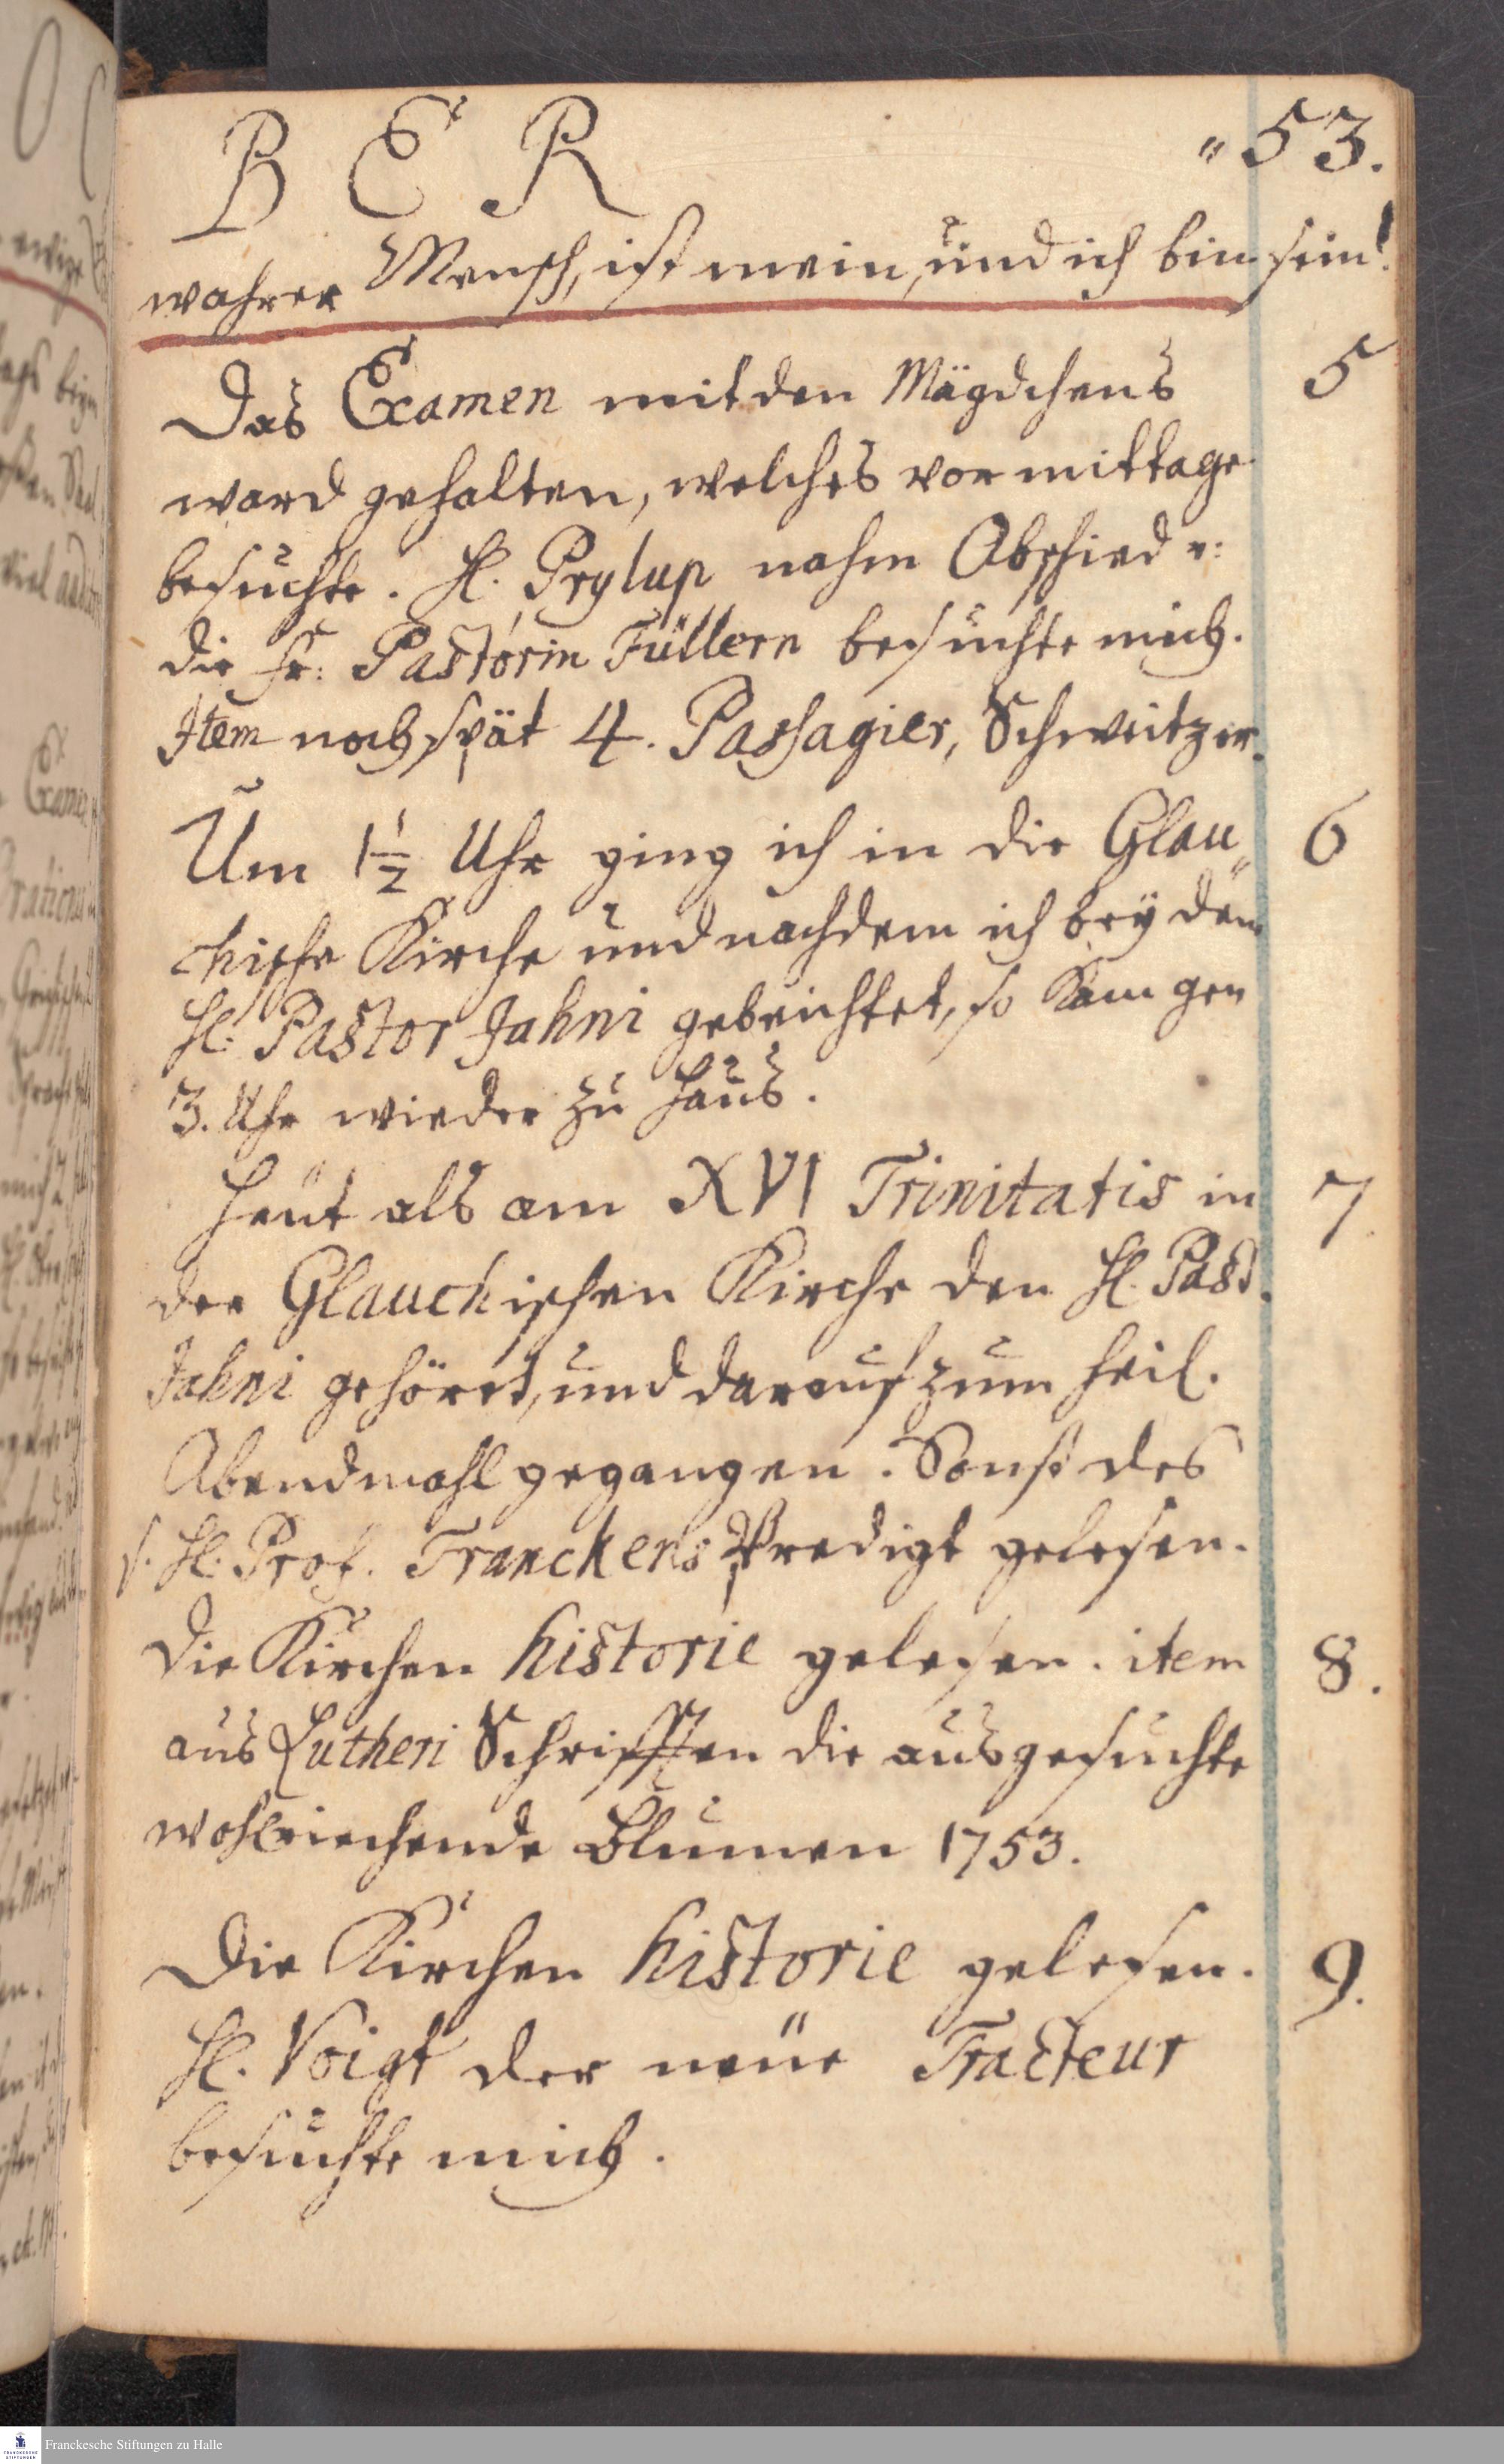 B E R „53.
wahrer Mensch, ist mein, und ich bin sein!
Das Examen mit den Mägdchens 5
ward gehalten, welches vormittage
besuchte. H. Prylup nahm Abschied u:
die Fr: Pastorin Füllern besuchte mich.
Item noch spät 4. Passagier, Schweitzer.
Um 1½ Uhr ging ich in die Glau„ 6
chische Kirche und nachdem ich bey dem
H. Pastor Jahni gebeichtet, so kam gen
3. Uhr wieder zu Haus.
Heut als am XVI Trinitatis in 7.
der Glauchischen Kirche den H. Past.
Jahni gehöret, und darauf zum heil.
Abendmahl gegangen. Sonst des
s. H. Prof. Franckens Predigt gelesen.
Die Kirchen historie gelesen. item 8.
aus Lutheri Schrifften die ausgesuchte
wohlriechende Blumen 1753.
Die Kirchen historie gelesen. 9.
H. Voigt der neüe Tracteur
besuchte mich.
Franckesche Stiftungen zu Halle